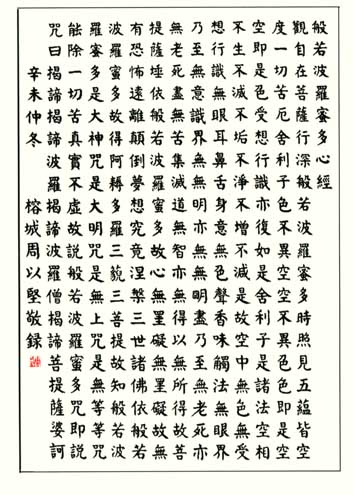 般若波羅蜜多心經
觀自在菩薩行深般若波羅蜜多時照見五蘊皆空
度一切苦厄舍利子色不異空空不異色色即是空
空即是色受想行識亦復如是舍利子是諸法空相
不生不滅不垢不淨不增不減是故空中無色無受
想行識無眼耳鼻舌身意無色聲香味觸法無眼界
乃至無意識界無無明亦無無明盡乃至無老死亦
無老死盡無苦集滅道無智亦無得以無所得故菩
提薩埵依般若波羅蜜多故心無罣礙無罣礙故無
有恐怖遠離顛倒夢想究竟涅槃三世諸佛依般若
波羅蜜多故得阿耨多羅三藐三菩提故知般若波
羅蜜多是大神咒是大明咒是無上咒是無等等咒
能除一切苦真實不虛故說般若波羅蜜多咒即說
咒曰揭諦揭諦波羅揭諦波羅僧揭諦菩提薩婆訶
辛未仲冬 榕城周以堅敬録